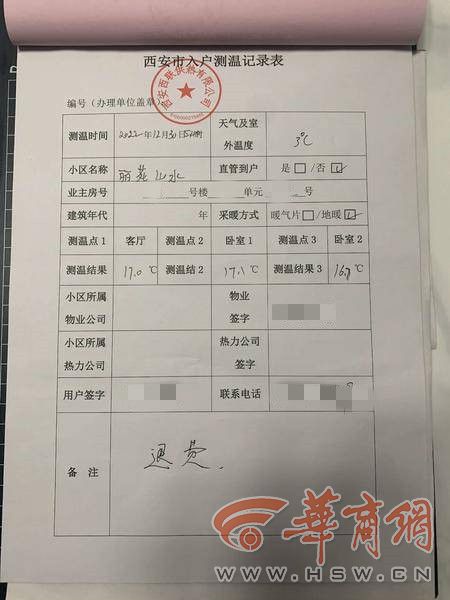 西安市入户测温记录表
编号（办理单位盖章）
西安西联供热有限公司
测温时间 2022年12月30日15时 天气及室外温度 3℃
小区名称 丽苑山水 直管到户 是□/否☑
业主房号 号楼 单元 号
建筑年代 年 采暖方式 暖气片□/地暖☑
测温点1 客厅 测温点2 卧室1 测温点3 卧室2
测温结果 17.0 ℃ 测温结2 17.1 ℃ 测温结果3 16.7 ℃
小区所属物业公司 物业签字
小区所属热力公司 热力公司签字
用户签字 联系电话
备 注 退费.
华商网
WWW.HSW.CN